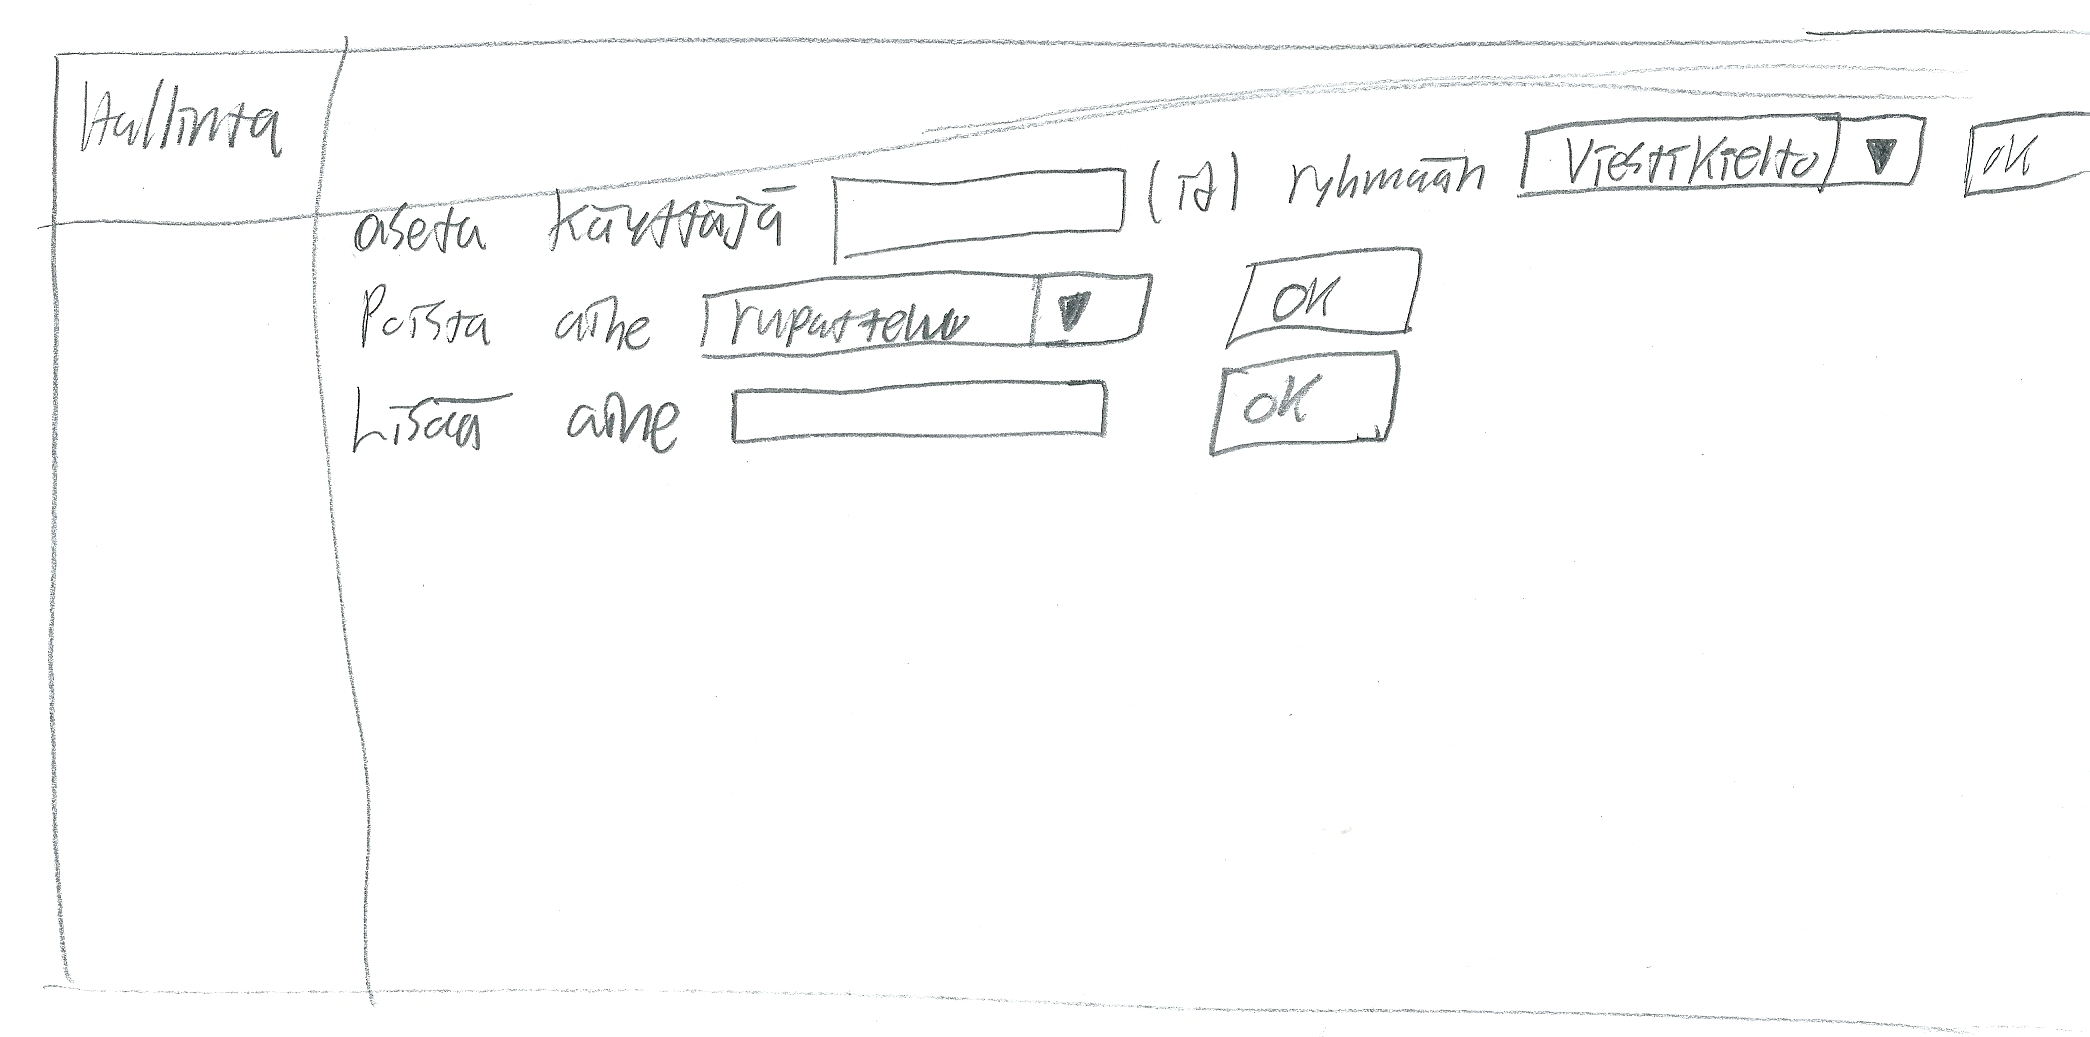 Hallinta
aseta käyttäjä (id) ryhmään Viestikielto OK
Poista aihe rupattelu OK
Lisää aihe OK